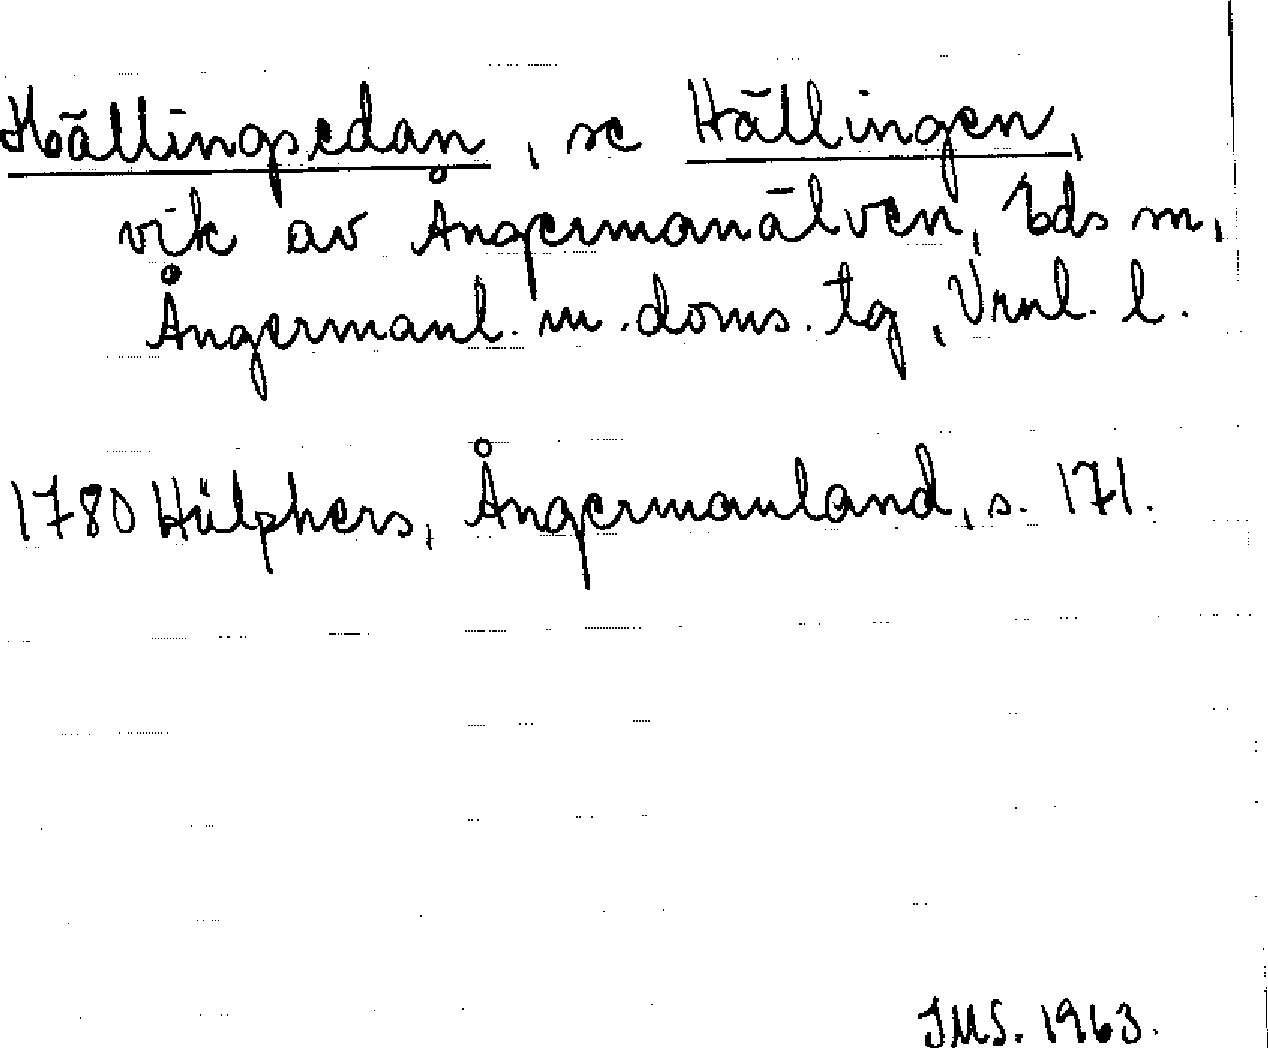 Hällingsedan, se Hällingen,
vik av Ångermanälven, Eds sn,
Ångermanl. m. doms. tg, Vrnl. l.
1780 Hülphers, Ångermanland, s. 171.
JMS. 1963.